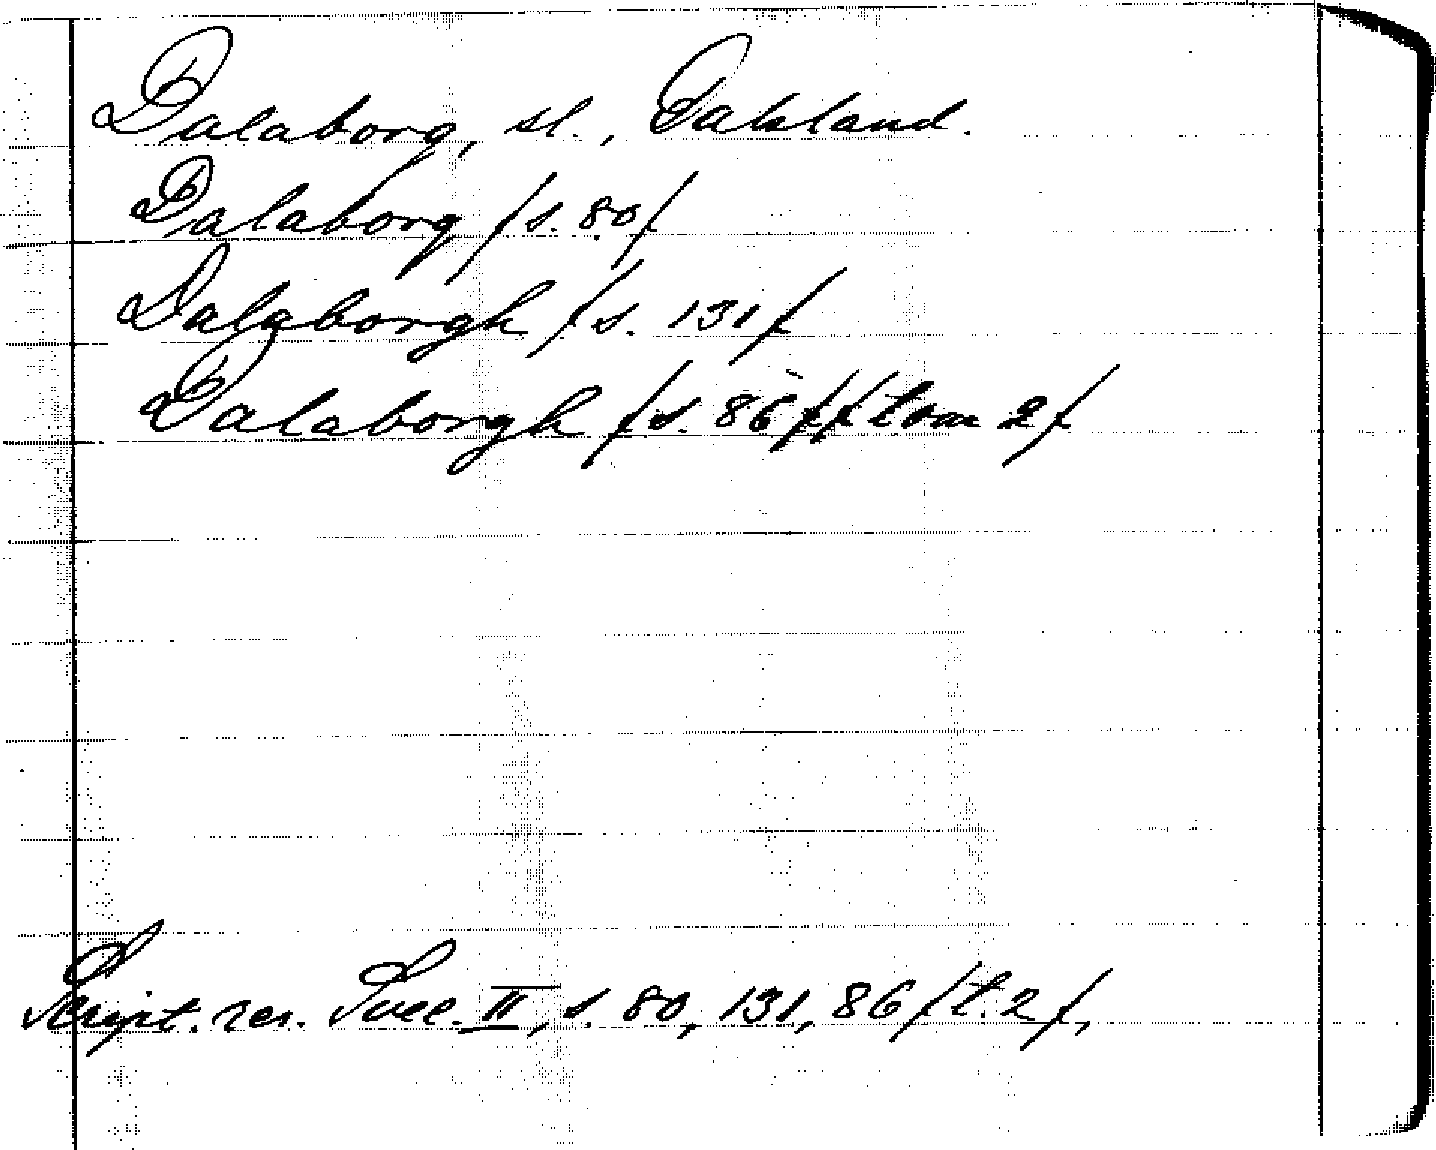 Dalaborg, sl., Dalsland.
Dalaborg /s. 80/
Dalaborgh /s. 131/
Dalaborgh /s. 86//tom 2/
Script. rer. Suec. II, s. 80, 131, 86 /t. 2/,